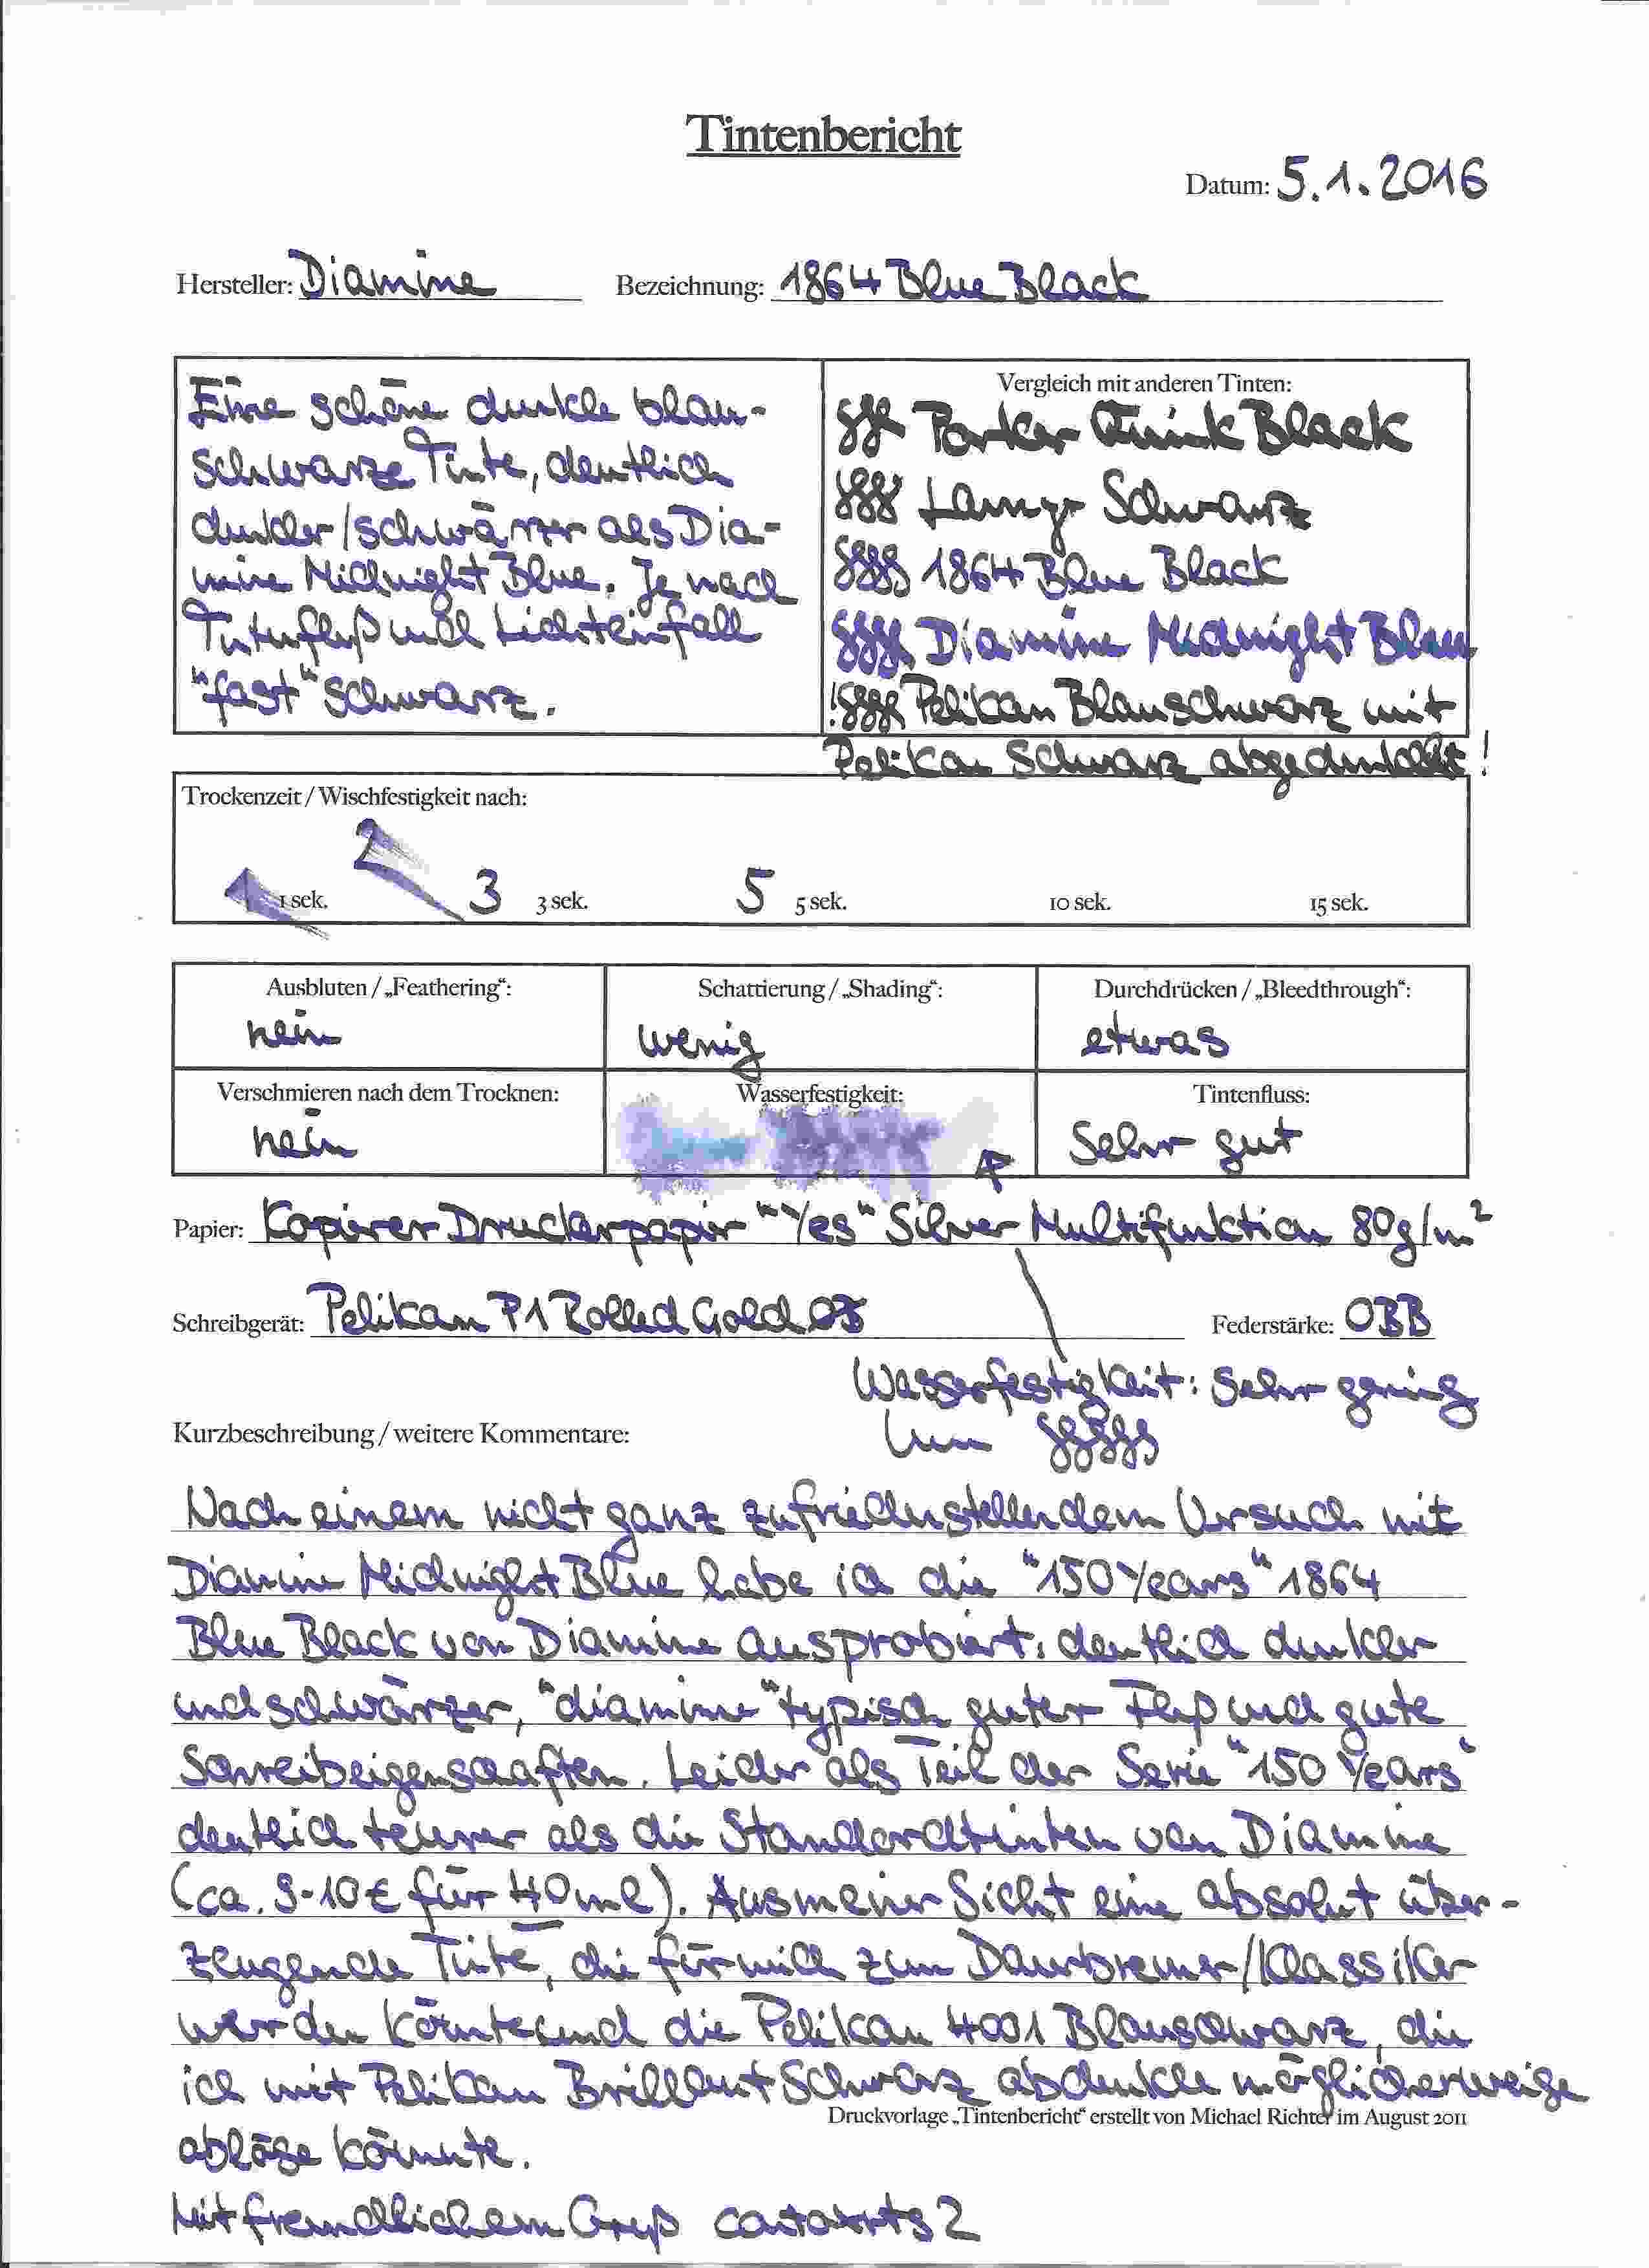 Tintenbericht
Datum: 5.1.2016
Hersteller: Diamine Bezeichnung: 1864 Blue Black
Eine schöne dunkle blau-
schwarze Tinte, deutlich
dunkler/schwärzer als Dia-
mine Midnight Blue. Je nach
Tintenfluß und Lichteinfall
"fast" schwarz.
Vergleich mit anderen Tinten:
Parker Quink Black
Lamy Schwarz
1864 Blue Black
Diamine Midnight Blau
Pelikan Blauschwarz mit
Pelikan Schwarz abgedunkelt!
Trockenzeit / Wischfestigkeit nach:
2
1 1 sek. 3 3 sek. 5 5 sek. 10 sek. 15 sek.
Ausbluten / „Feathering“: Schattierung / „Shading“: Durchdrücken / „Bleedthrough“:
nein wenig etwas
Verschmieren nach dem Trocknen: Wasserfestigkeit: Tintenfluss:
nein Sehr gut
Papier: Kopierer Druckerpapier "Yes" Silver Multifunktion 80g/m²
Schreibgerät: Pelikan P1 Rolled Gold Federstärke: OBB
Wasserfestigkeit: Sehr gering
Kurzbeschreibung / weitere Kommentare:
Nach einem nicht ganz zufriedenstellendem Versuch mit
Diamine Midnight Blue habe ich die "150 Years" 1864
Blue Black von Diamine ausprobiert: deutlich dunkler
und schwärzer, "diamine" typisch guter Fluß und gute
Schreibeigenschaften. Leider als Teil der Serie "150 Years"
deutlich teurer als die Standardtinten von Diamine
(ca. 9-10€ für 40ml). Aus meiner Sicht eine absolut über-
zeugende Tinte, die für mich zum Dauerbrenner/Klassiker
werden könnte und die Pelikan 4001 Blauschwarz, die
ich mit Pelikan Brillant Schwarz abdunkle möglicherweise
Druckvorlage „Tintenbericht“ erstellt von Michael Richter im August 2011
ablöse könnte.
Mit freundlichem Gruß